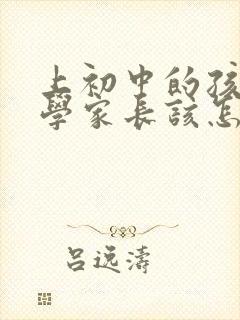 上初中的孩
學家長該怎
吕远濤